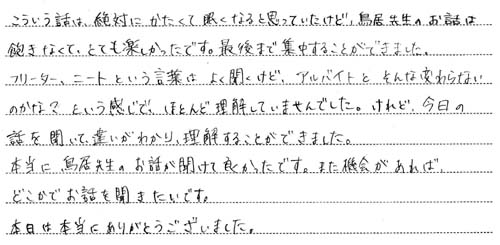 こういう話は、絶対にかたくて眠くなると思っていたけど、鳥居先生のお話は
飽きなくて、とても楽しかったです。最後まで集中することができました。
フリーター、ニートという言葉はよく聞くけど、アルバイトとそんな変わらない
のかな？という感じで、ほとんど理解していませんでした。けれど、今日の
話を聞いて、違いがわかり、理解することができました。
本当に鳥居先生のお話が聞けて良かったです。また機会があれば、
どこかでお話を聞きたいです。
本日は本当にありがとうございました。